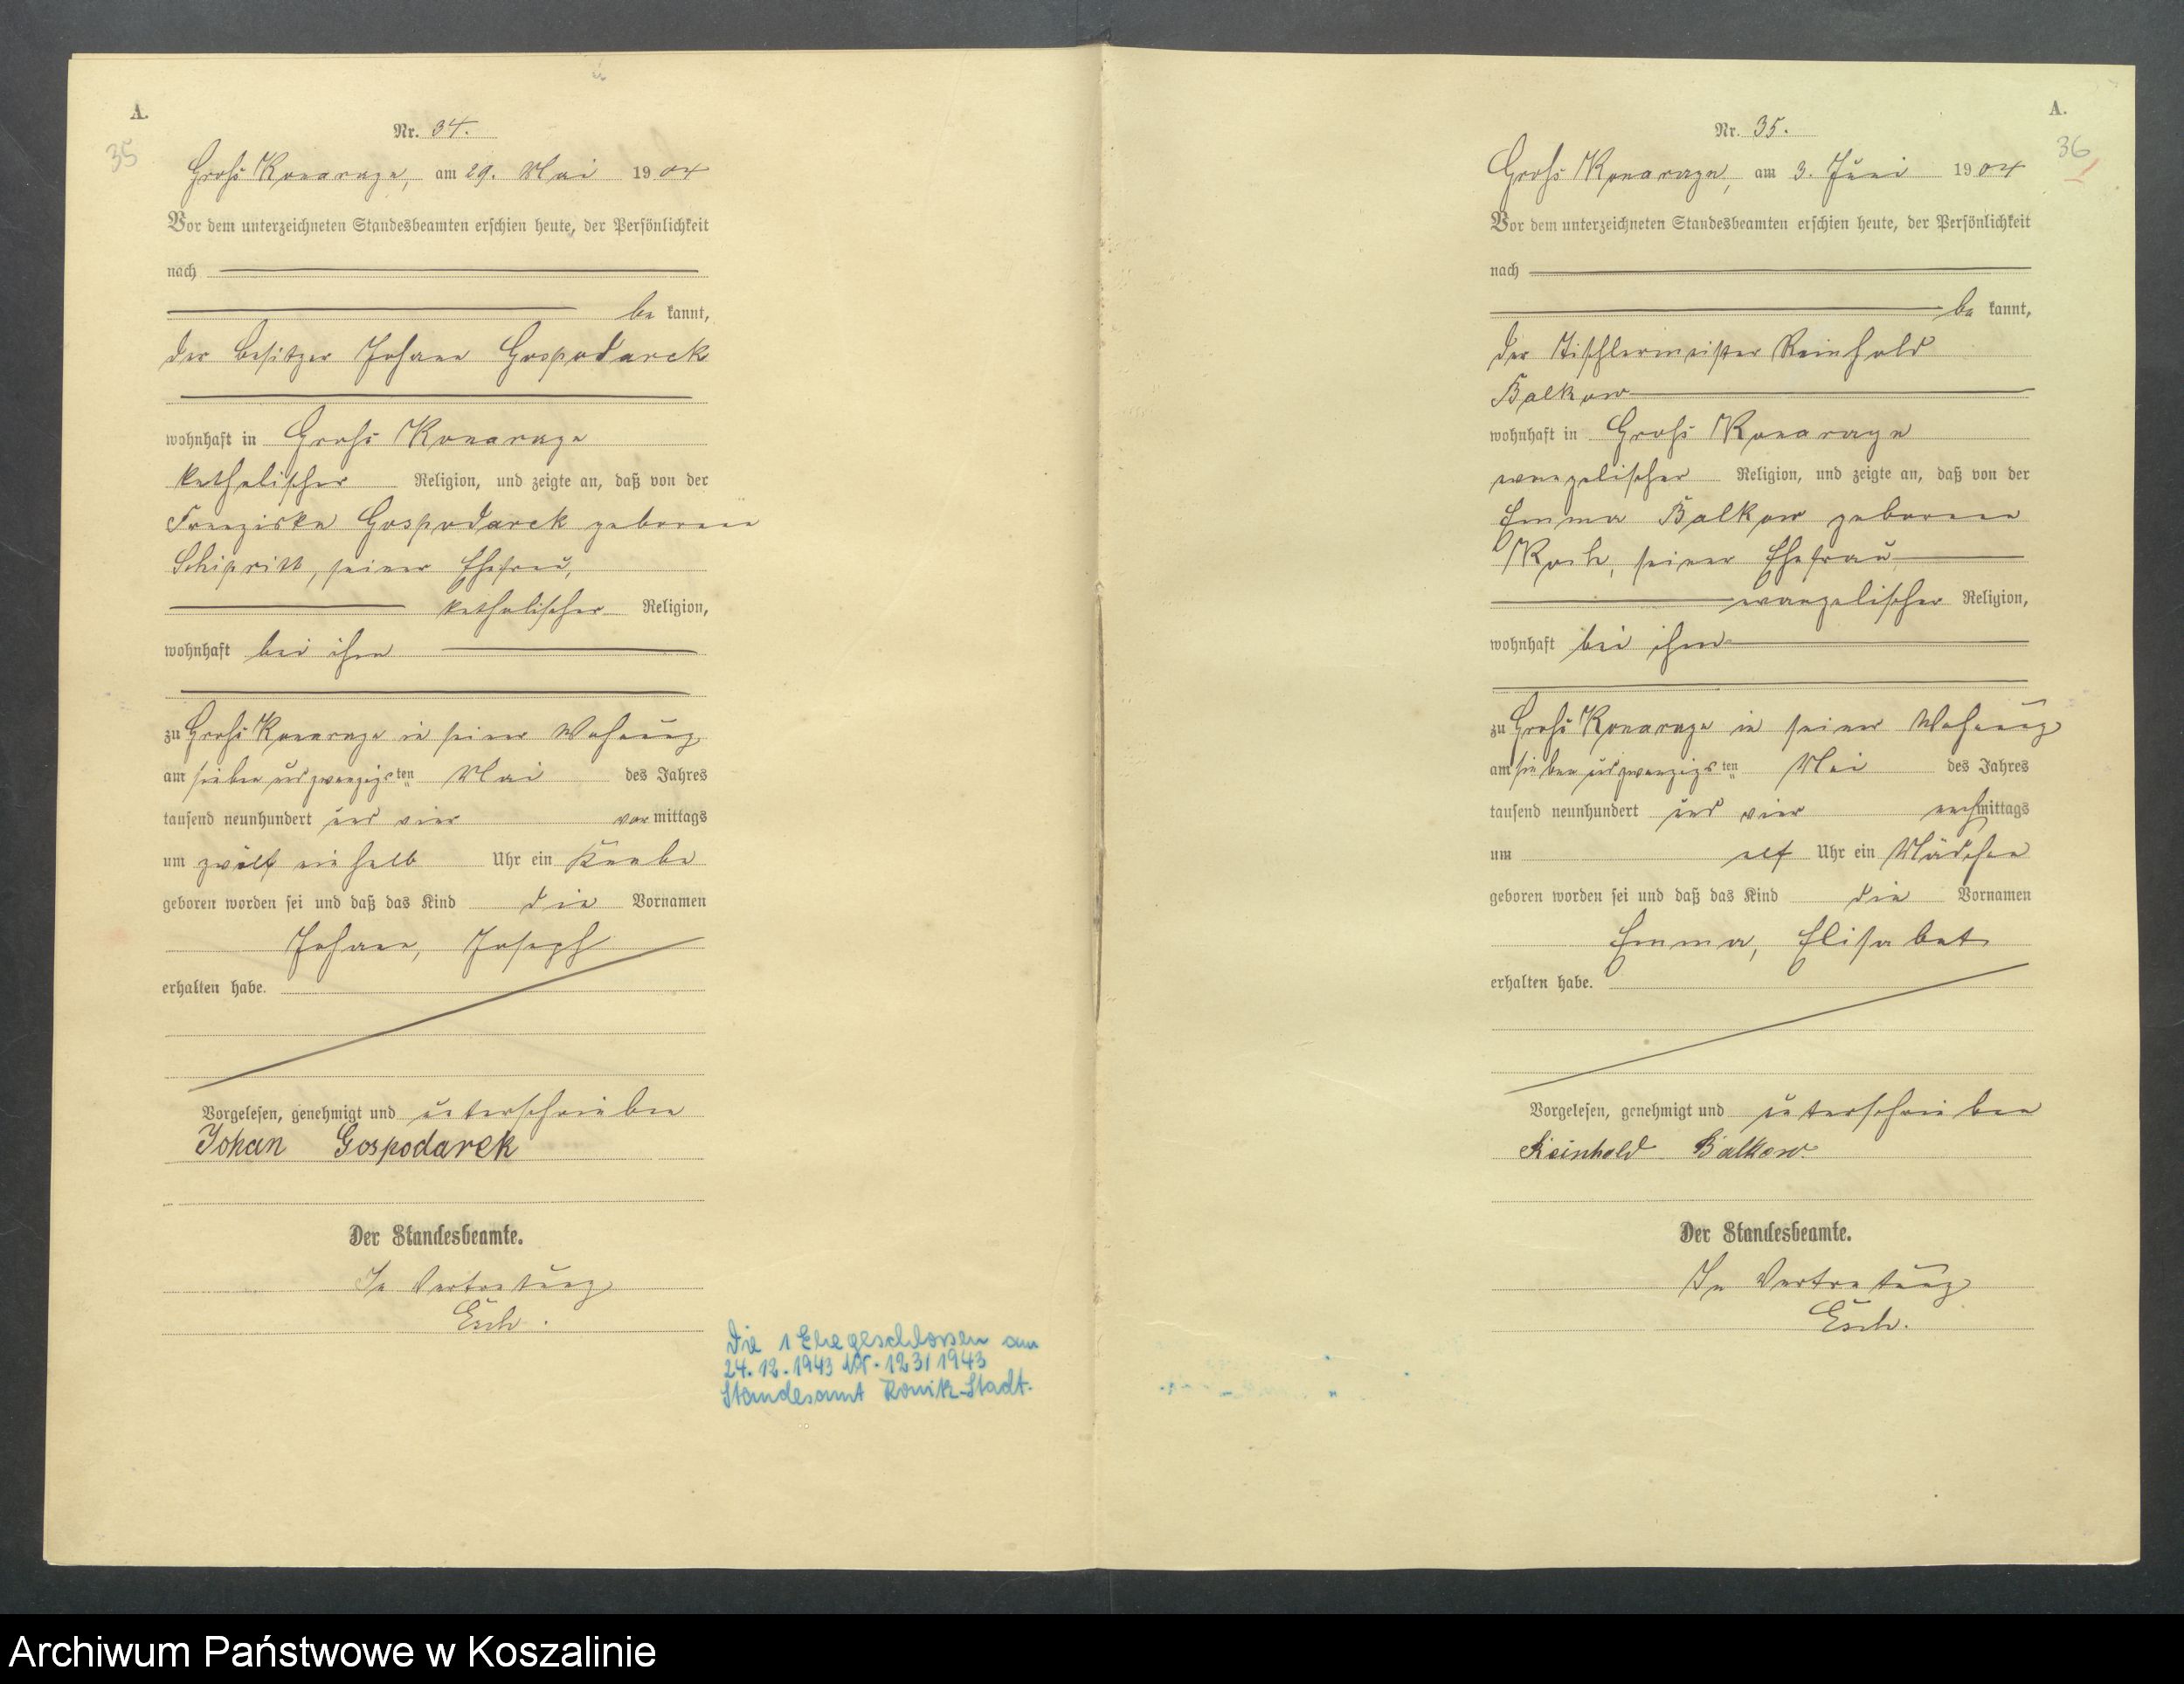 A.
35
Nr. 34.
Groß Konarzyn, am 29. Mai 1904
Vor dem unterzeichneten Standesbeamten erschien heute, der Persönlichkeit
nach
be kannt,
der Besitzer Johann Gospodarek
wohnhaft in Groß Konarzyn
katholischer Religion, und zeigte an, daß von der
Franziska Gospodarek geborene
seiner Ehefrau,
katholischer Religion,
wohnhaft bei ihm
zu Groß Konarzyn in seiner Wohnung
am sieben und zwanzigsten Mai des Jahres
tausend neunhundert und vier vor mittags
um zwölf ein halb Uhr ein Knabe
geboren worden sei und daß das Kind die Vornamen
Johann, Joseph
erhalten habe.
Vorgelesen, genehmigt und unterschrieben
Johan Gospodarek
Der Standesbeamte.
In Vertretung
Esch.
Die 1 Ehe geschlossen am
24.12.1943 Nr. 123/1943
Standesamt Konitz-Stadt.
A.
36
Nr. 35.
Groß Konarzyn, am 3. Juni 1904
Vor dem unterzeichneten Standesbeamten erschien heute, der Persönlichkeit
nach
be kannt,
der Tischlermeister Reinhold
Balkow
wohnhaft in Groß Konarzyn
evangelischer Religion, und zeigte an, daß von der
Emma Balkow geborene
Koch, seiner Ehefrau
evangelischer Religion,
wohnhaft bei ihm
zu Groß Konarzyn in seiner Wohnung
am sieben und zwanzigsten Mai des Jahres
tausend neunhundert und vier nachmittags
um elf Uhr ein Mädchen
geboren worden sei und daß das Kind die Vornamen
Emma, Elisabet
erhalten habe.
Vorgelesen, genehmigt und unterschrieben
Reinhold Balkow
Der Standesbeamte.
In Vertretung
Esch.
Archiwum Państwowe w Koszalinie